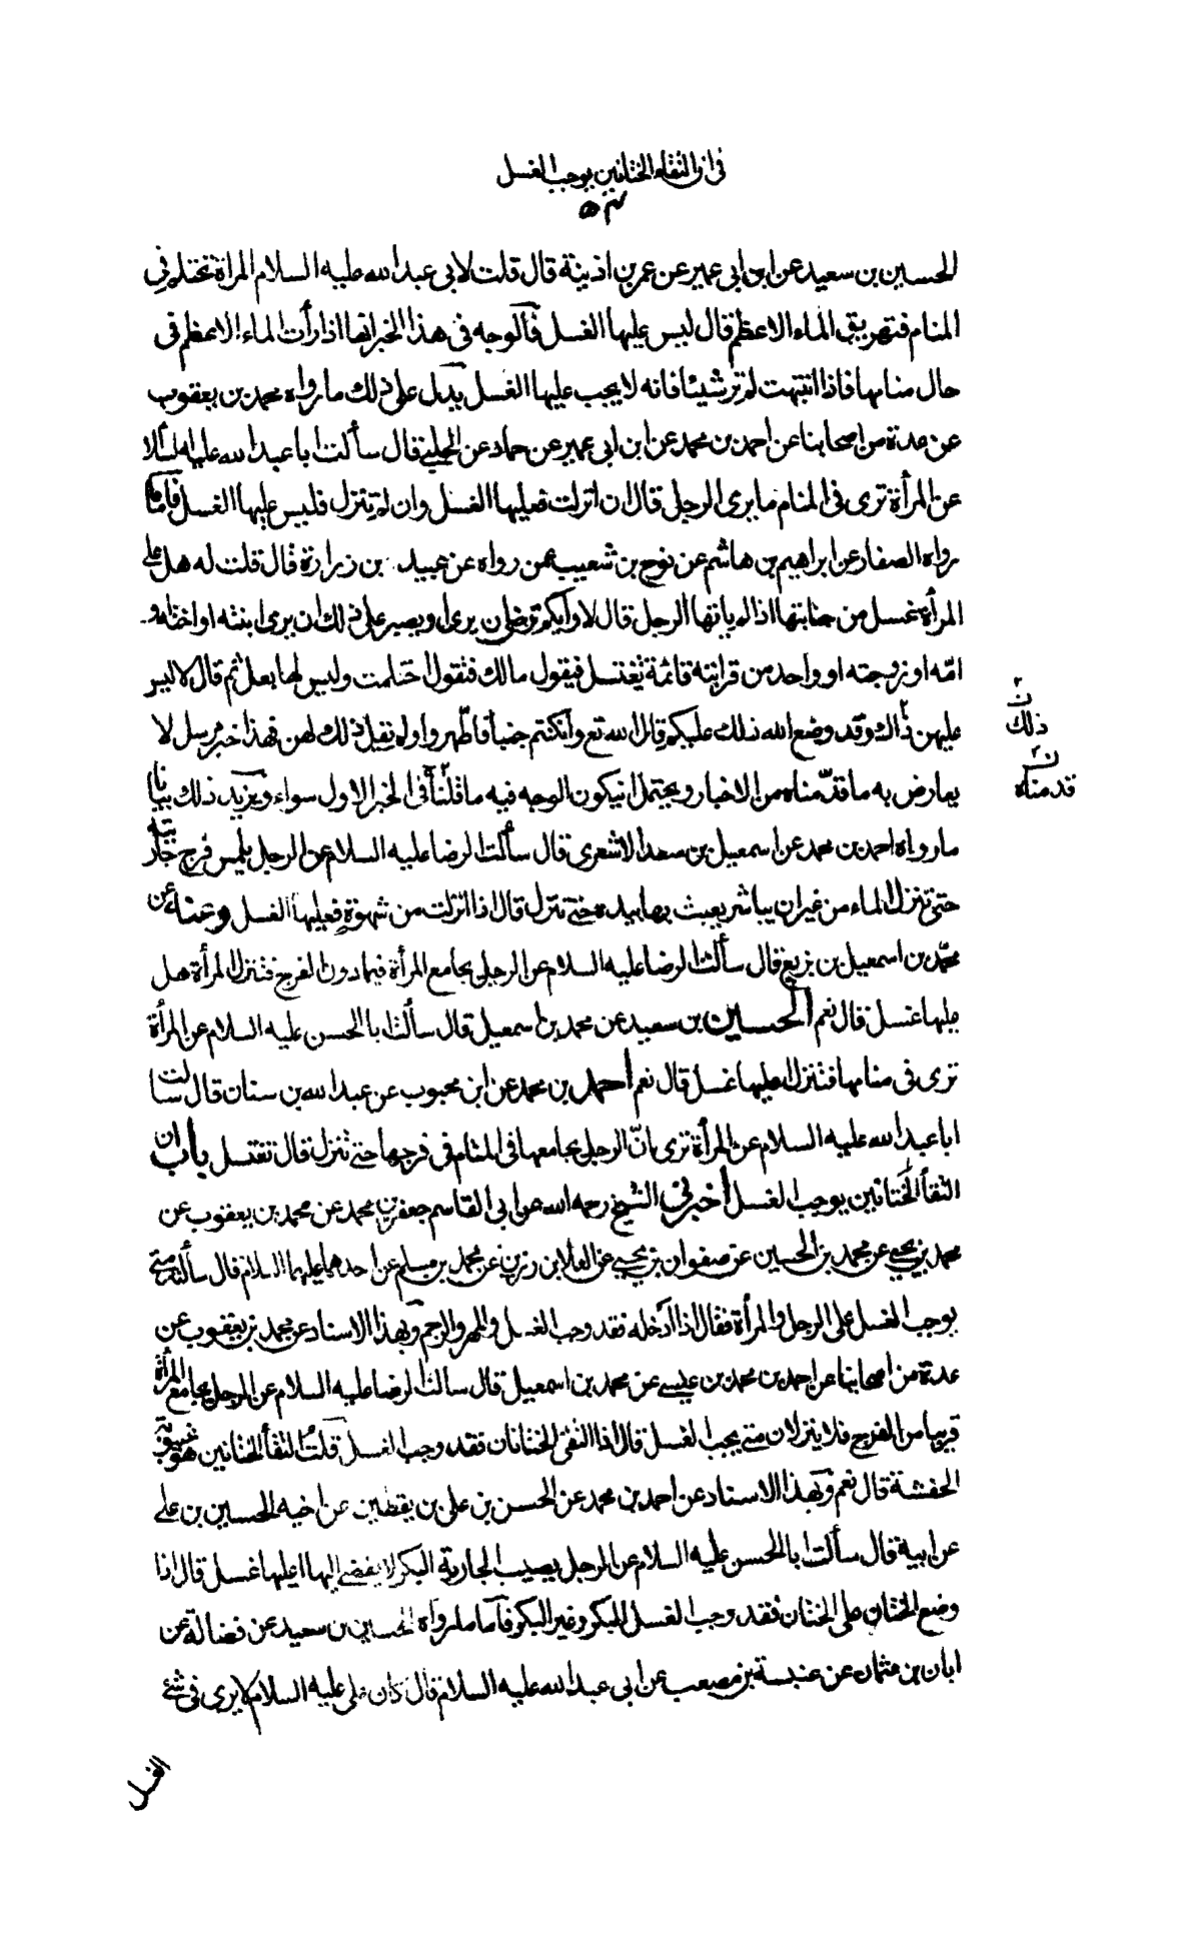 فى ان التقاء الختانين يوجب الغسل
الحسين بن سعيد عن ابن ابى عمير عن عمر بن اذينة قال قلت لابى عبد الله عليه السلام المراة تحتلم فى
المنام فتهريق الماء الاعظم قال ليس عليها الغسل فالوجه فى هذا الخبر انها اذا رأت الماء الاعظم فى
حال منامها فاذا انتبهت لم تر شيئا فانه لا يجب عليها الغسل يدل على ذلك ما رواه محمد بن يعقوب
عن عدة من اصحابنا عن احمد بن محمد عن ابن ابى عمير عن حماد عن الحلبى قال سألت ابا عبد الله عليه السلام
عن المرأة ترى فى المنام ما يرى الرجل قال ان انزلت فعليها الغسل وان لم تنزل فليس عليها الغسل فاما ما
رواه الصفار عن ابراهيم بن هاشم عن نوح بن شعيب عمن رواه عن عبيد بن زرارة قال قلت له هل على
المرأة غسل من جنابتها اذا لم ياتها الرجل قال لا وايكم يرضى ان يرى او يصبر على ذلك ان يرى ابنته او اخته او
امّه او زوجته او واحد من قرابته قائمة تغتسل فيقول مالك فتقول احتلمت وليس لها بعل ثم قال لا ليس
عليهن ذاك وقد وضع الله ذلك عليكم قال الله تع وان كنتم جنبا فاطّهروا ولم يقل ذلك لهن فهذا خبر مرسل لا
يعارض به ما قدّمناه من الاخبار ويحتمل ان يكون الوجه فيه ما قلناه فى الخبر الاول سواء ويزيد ذلك بيانا
ما رواه احمد بن محمد عن اسمعيل بن سعد الاشعرى قال سألت الرضا عليه السلام عن الرجل يلمس فرج جاريته
حتى تنزل الماء من غير ان يباشر يعبث بها بيده حتى تنزل قال اذا انزلت من شهوة فعليها الغسل وعنه عن
محمّد بن اسمعيل بن بزيع قال سألت الرضا عليه السلام عن الرجل يجامع المرأة فيما دون الفرج فتنزل المرأة هل
عليها غسل قال نعم الحسين بن سعيد عن محمد بن اسمعيل قال سألت ابا الحسن عليه السلام عن المرأة
ترى فى منامها فتنزل عليها غسل قال نعم احمد بن محمد عن ابن محبوب عن عبد الله بن سنان قال سالت
ابا عبد الله عليه السلام عن المرأة ترى بانّ الرجل يجامعها فى المنام فى فرجها حتى تنزل قال تغتسل باب ان
التقأ الختانين يوجب الغسل أخبرنى الشيخ رحمه الله عن ابى القاسم جعفر بن محمد عن محمد بن يعقوب عن
محمد بن يحيى عن محمد بن الحسين عن صفوان بن يحيى عن العلا بن رزين عن محمد بن مسلم عن احدهما عليهما السلام قال سألته متى
يوجب الغسل على الرجل والمرأة فقال اذا ادخله فقد وجب الغسل والمهر والرجم وبهذا الاسناد عن محمد بن يعقوب عن
عدة من اصحابنا عن احمد بن محمد بن عيسى عن محمد بن اسمعيل قال سالت الرضا عليه السلام عن الرجل يجامع المرأة
قريبا من الفرج فلا ينزلان متى يجب الغسل قال اذا التقى الختانان فقد وجب الغسل قلت التقأ الختانين هو غيبوبة
الحفشة قال نعم وبهذا الاسناد عن احمد بن محمد عن الحسن بن على بن يقطين عن اخيه الحسين بن على
عن ابيه قال سألت ابا الحسن عليه السلام عن الرجل يصيب الجارية البكر لا يفضى اليها اعليها غسل قال اذا
وضع الختان على الختان فقد وجب الغسل للبكر وغير البكر فاما ما رواه الحسين بن سعيد عن فضالة عن
ابان بن عثمان عن عنبسة بن مصعب عن ابى عبد الله عليه السلام قال كان على عليه السلام لا يرى فى شئ
ذلك
قدمناه
الغسل